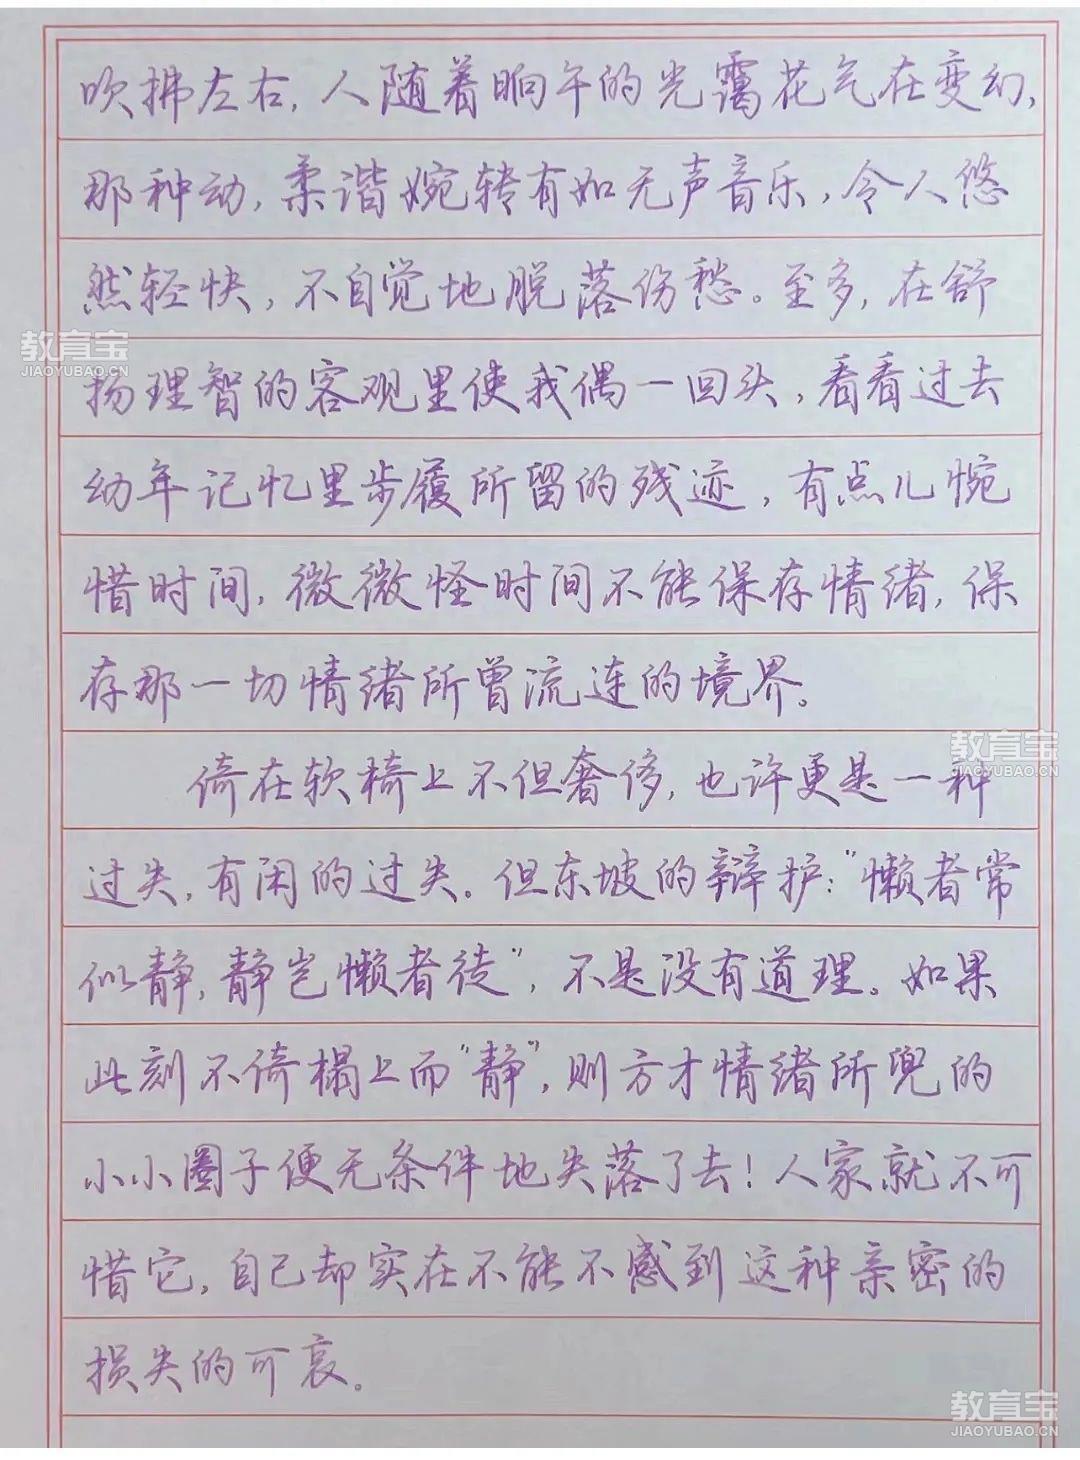 吹拂左右,人随着晌午的光霭花气在变幻,
那种动,柔谐婉转有如无声音乐,令人悠
然轻快,不自觉地脱落伤愁。至多,在舒
教育宝
JIAOYUBAO.CN
扬理智的客观里使我偶一回头,看看过去
幼年记忆里步履所留的残迹,有点儿惋
惜时间,微微怪时间不能保存情绪,保
存那一切情绪所曾流连的境界。
教育宝
JIAOYUBAO.CN
倚在软椅上不但奢侈,也许更是一种
过失,有闲的过失。但东坡的辩护:"懒者常
似静,静岂懒者徒",不是没有道理。如果
此刻不倚榻上而"静",则方才情绪所兜的
小小圈子便无条件地失落了去!人家就不可
惜它,自己却实在不能不感到这种亲密的
损失的可哀。
教育宝
JIAOYUBAO.CN